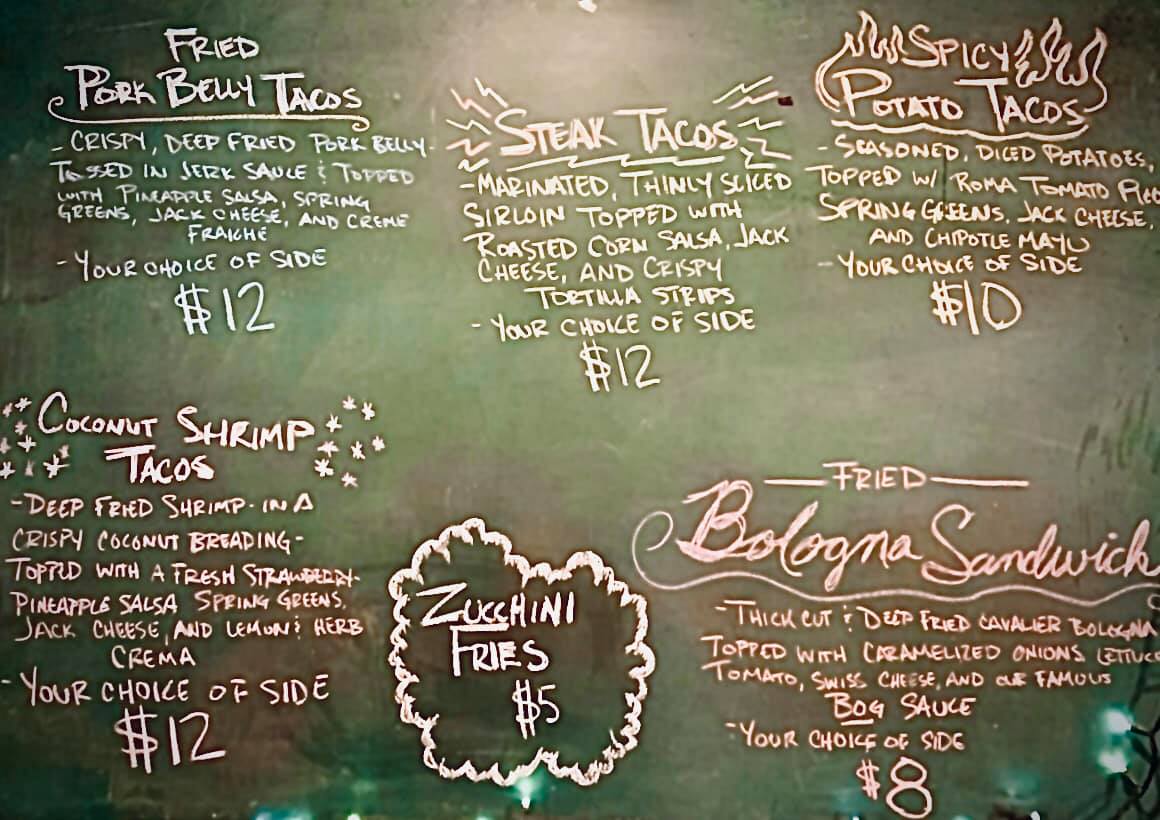 FRIED
PORK BELLY TACOS
- CRISPY, DEEP FRIED PORK BELLY-
TOSSED IN JERK SAUCE & TOPPED
WITH PINEAPPLE SALSA, SPRING
GREENS, JACK CHEESE, AND CREME
FRAICHE
- YOUR CHOICE OF SIDE
$12
STEAK TACOS
- MARINATED, THINLY SLICED
SIRLOIN TOPPED WITH
ROASTED CORN SALSA, JACK
CHEESE, AND CRISPY
TORTILLA STRIPS
- YOUR CHOICE OF SIDE
$12
SPICY
POTATO TACOS
- SEASONED, DICED POTATOES,
TOPPED W/ ROMA TOMATO
SPRING GREENS, JACK CHEESE,
AND CHIPOTLE MAYO
- YOUR CHOICE OF SIDE
$10
COCONUT SHRIMP
TACOS
- DEEP FRIED SHRIMP - IN A
CRISPY COCONUT BREADING -
TOPPED WITH A FRESH STRAWBERRY-
PINEAPPLE SALSA SPRING GREENS,
JACK CHEESE, AND LEMON & HERB
CREMA
- YOUR CHOICE OF SIDE
$12
ZUCCHINI
FRIES
$5
FRIED
Bologna Sandwich
- THICK CUT & DEEP FRIED CAVALIER BOLOGNA
TOPPED WITH CARAMELIZED ONIONS LETTUCE
TOMATO, SWISS CHEESE, AND OUR FAMOUS
BOG SAUCE
- YOUR CHOICE OF SIDE
$8